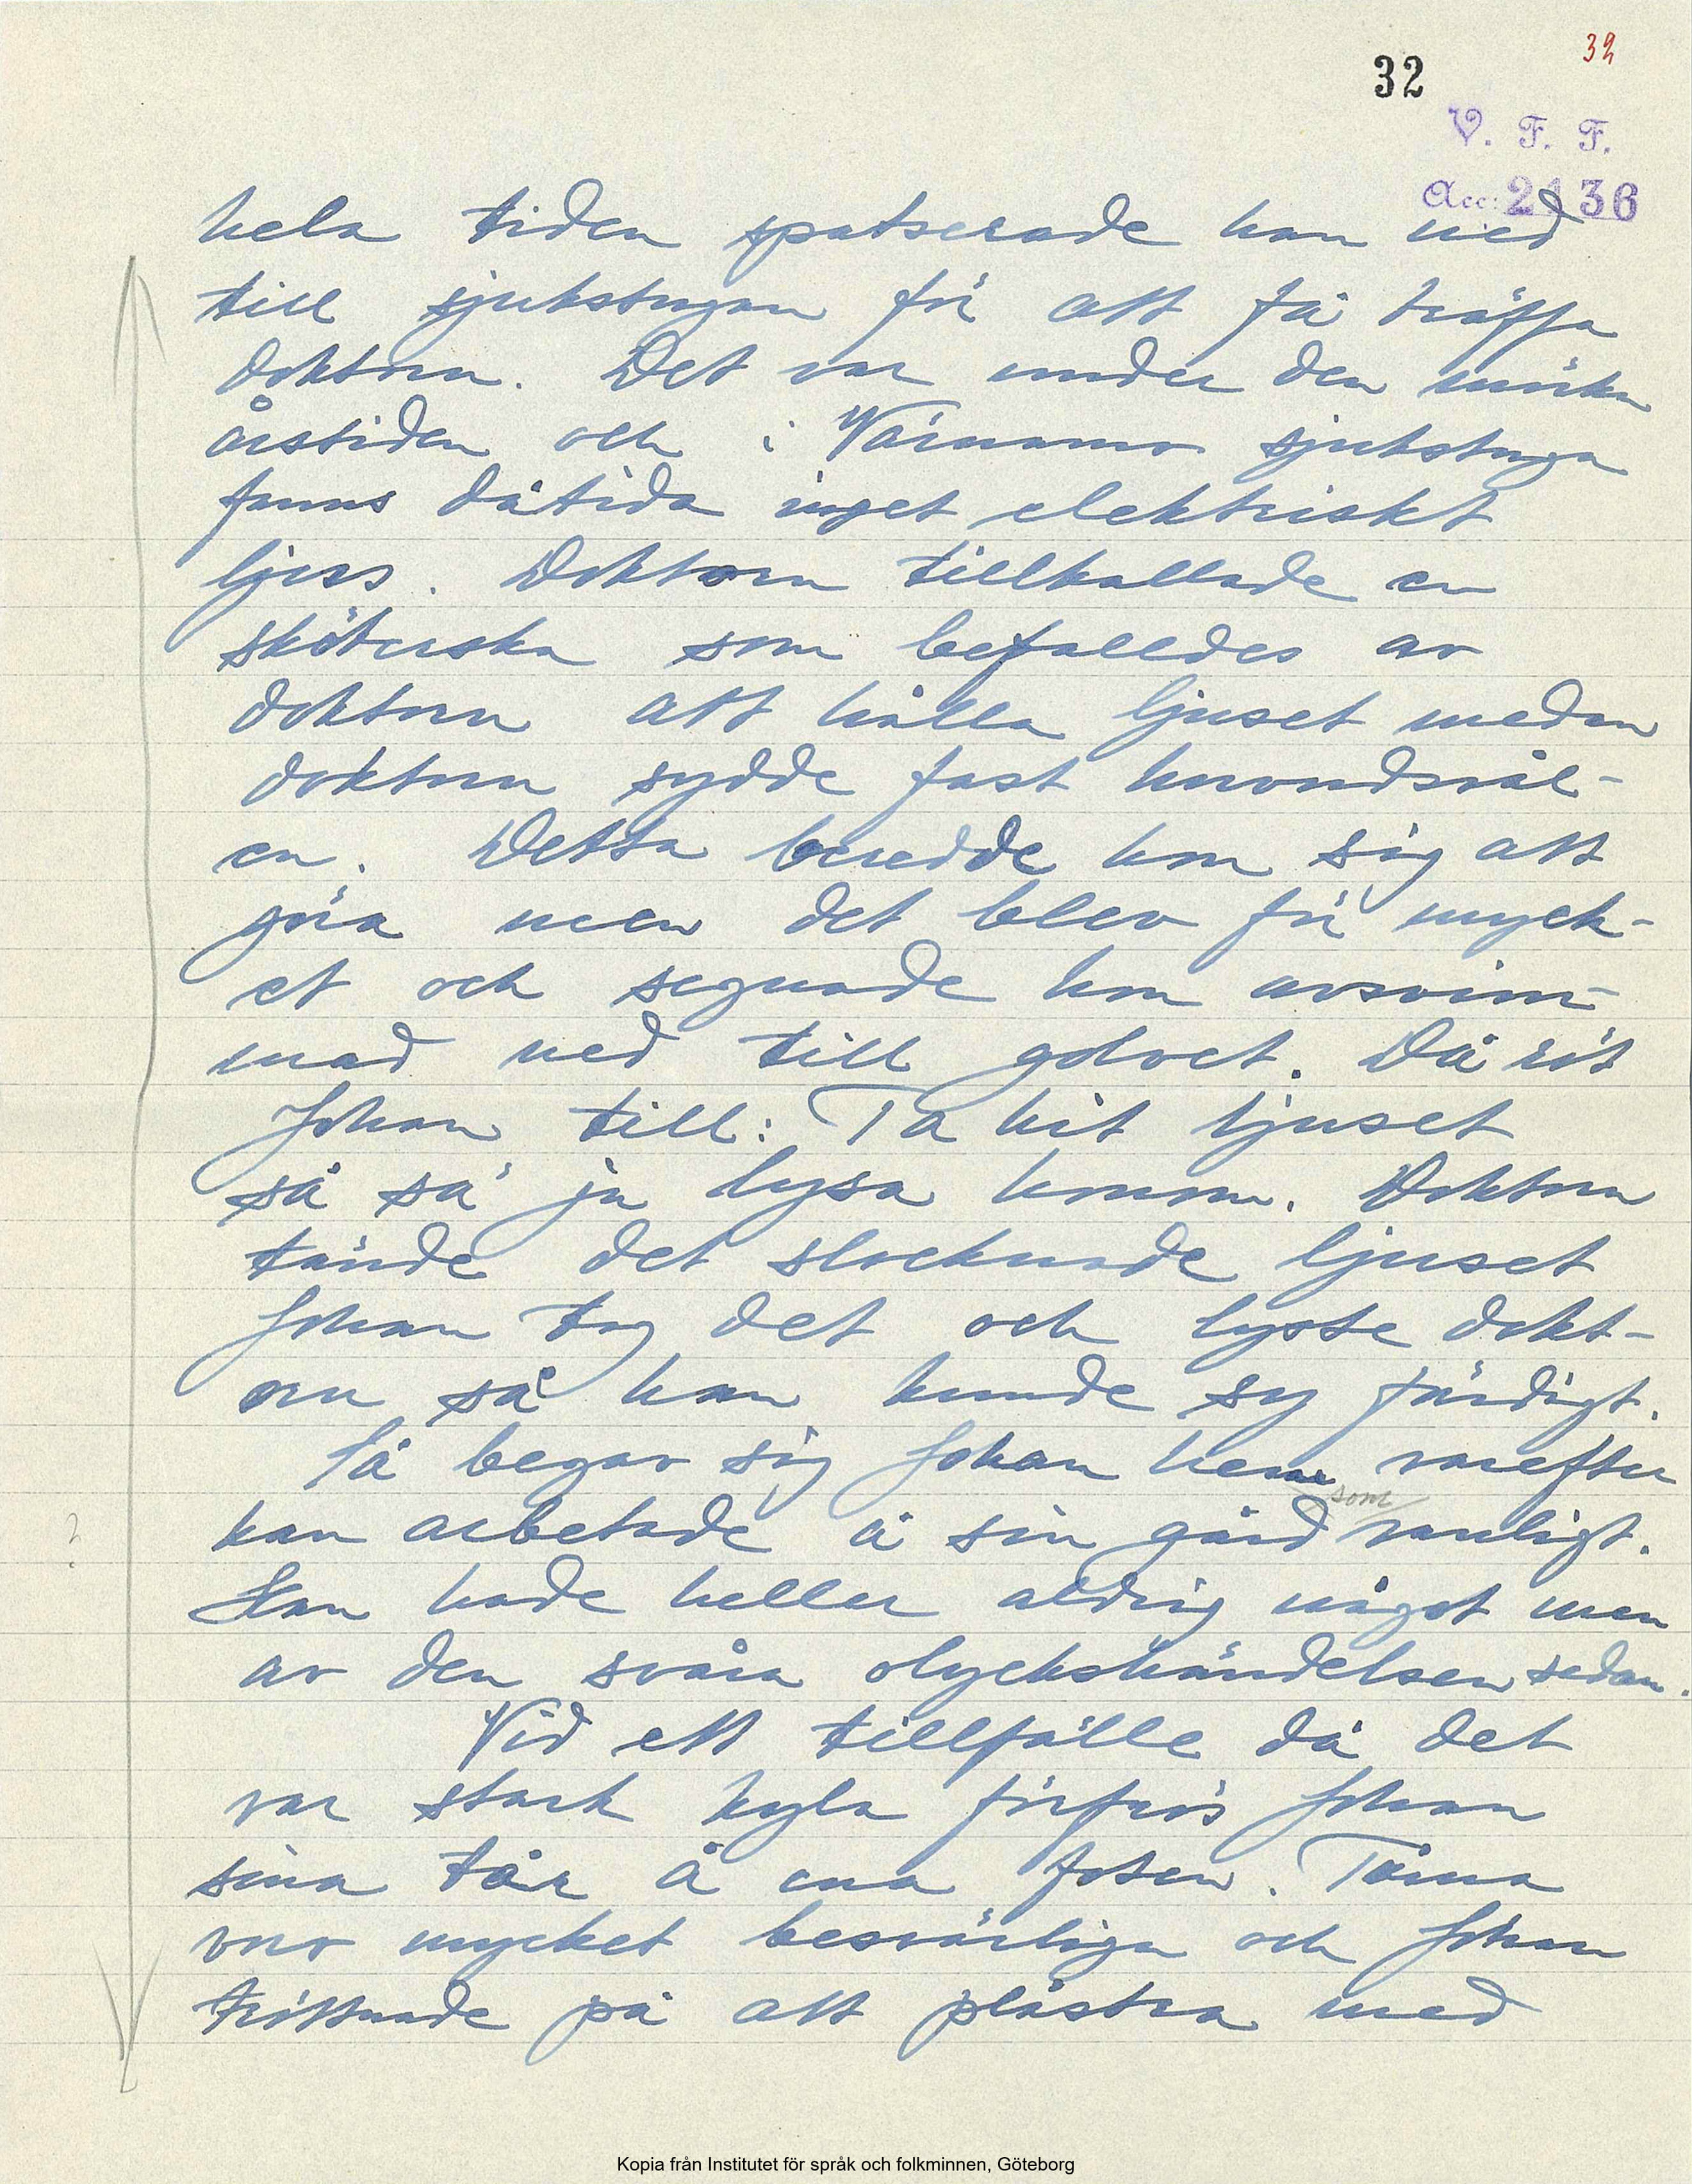 32
32
V. F. F.
Acc: 2136
hela tiden spatserade han ned
till sjukstugan för att få träffa
doktorn. Det var under den mörka
årstiden och i Värnamo sjukstuga
fanns dåtida inget elektriskt
ljus. Doktorn tillkallade en
sköterska som befalldes av
doktorn att hålla ljuset medan
doktorn sydde fast huvudsvål-
en. Detta beredde hon sig att
göra men det blev för myck-
et och segnade hon avsvim-
mad ned till golvet. Då röt
Johan till: Ta hit ljuset
så sa ja lysa honom. Doktorn
tände det slocknade ljuset
Johan tog det och lyste dokt-
orn så han kunde sy färdigt.
Så begav sig Johan hem varefter
som
han arbetade å sin gård vanligt.
?
Han hade heller aldrig något men
av den svåra olyckshändelsen sedan.
Vid ett tillfälle då det
var stark kyla förfrös Johan
sina tår å ena foten. Tårna
voro mycket besvärliga och Johan
tröttnade på att plåstra med
Kopia från Institutet för språk och folkminnen, Göteborg